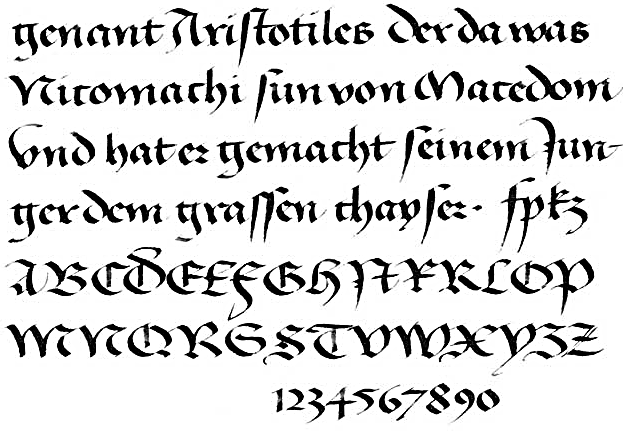 genant Ariſtotiles der da was
Nicomachi ſun von Macedom
Vnd hat er gemacht ſeinem Jun-
ger dem graſſen chayſer. ſpkz
ABCDEEFGHJAKKLOP
MNQRGSTVWXYZZ
1234567890